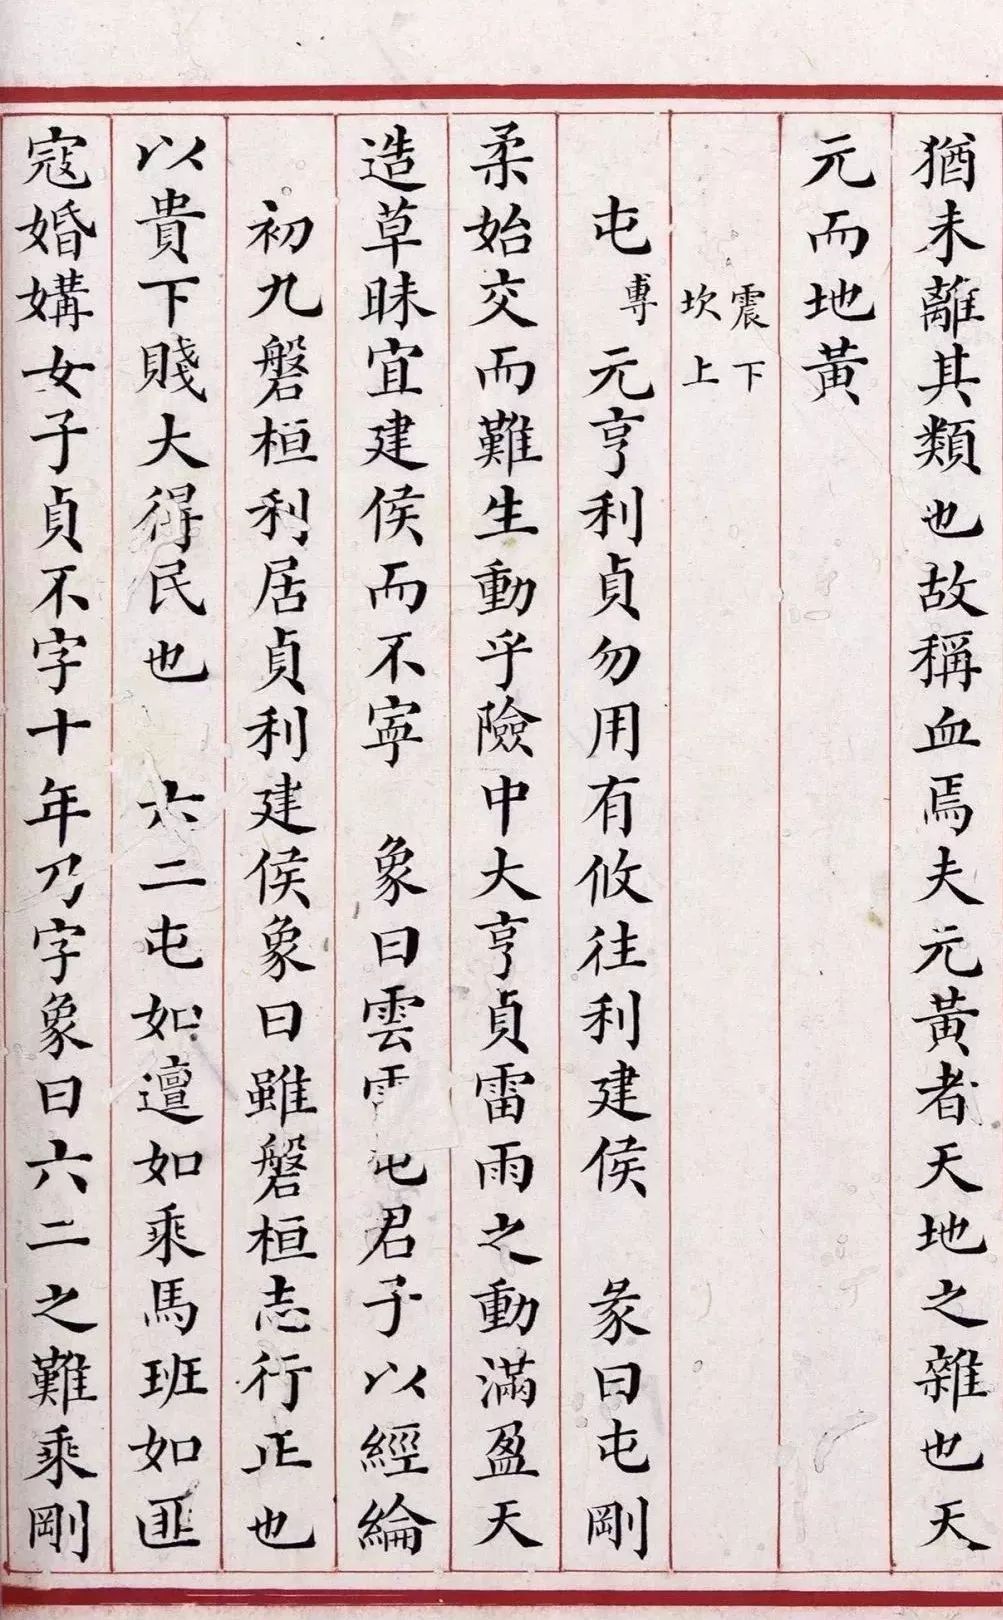 猶未離其類也故稱血焉夫元黃者天地之雜也天
元而地黃
震下
坎上
屯 專 元亨利貞勿用有攸往利建侯 彖曰屯剛
柔始交而難生動乎險中大亨貞雷雨之動滿盈天
造草昧宜建侯而不寧 象曰雲屯君子以經綸
初九磐桓利居貞利建侯象曰雖磐桓志行正也
以貴下賤大得民也 六二屯如邅如乘馬班如匪
寇婚媾女子貞不字十年乃字象曰六二之難乘剛